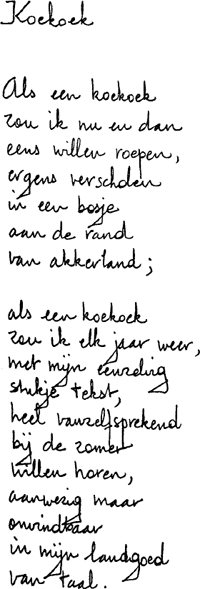 Koekoek

Als een koekoek
zou ik nu en dan
eens willen roepen,
ergens verscholen
in een bosje
aan de rand
van akkerland;

als een koekoek
zou ik elk jaar weer,
met mijn eenzelvig
stukje tekst,
heel vanzelfsprekend
bij de zomer
willen horen,
aanwezig maar
onvindbaar
in mijn landgoed
van taal.